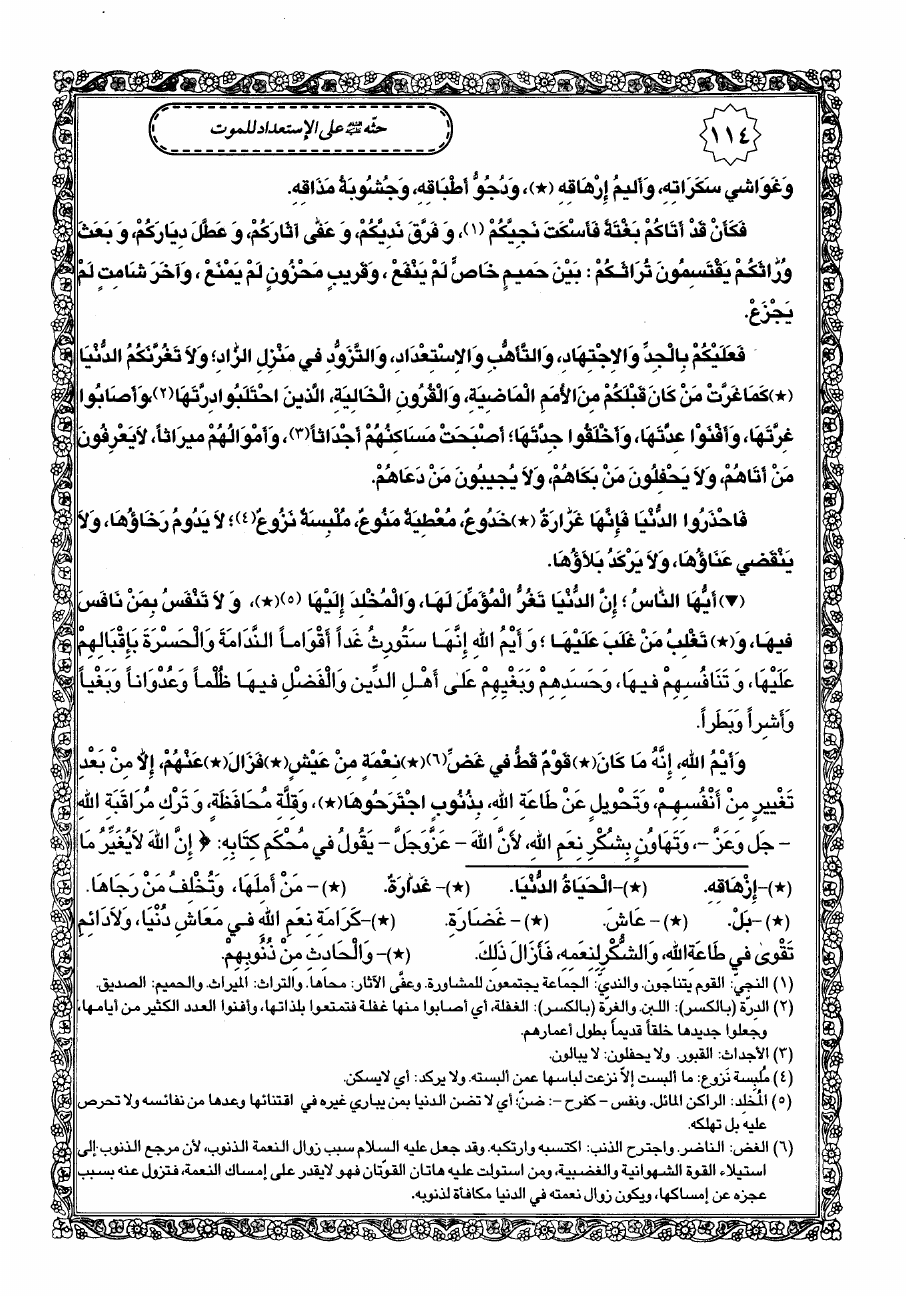 ١١٤
حثّه ﷺ على الإستعداد للموت
وَغَوَاشي سَكَرَاتِهِ، وَأَليمُ إِرْهَاقِهِ (★)، وَدُجُوُّ أَطْبَاقِهِ، وَجُشُوبَةُ مَذَاقِهِ.
فَكَأَنْ قَدْ أَتَاكُمْ بَغْتَةً فَأَسْكَتَ نَجِيَّكُمْ (١)، وَ فَرَّقَ نَدِيَّكُمْ، وَ عَفّى آثَارَكُمْ، وَ عَطَّلَ دِيَارَكُمْ، وَ بَعَثَ
وُرَّاثَكُمْ يَقْتَسِمُونَ تُرَاثَكُمْ : بَيْنَ حَميمٍ خَاصٍّ لَمْ يَنْفَعْ ، وَقَريبٍ مَحْزُونٍ لَمْ يَمْنَعْ ، وَآخَرَ شَامِتٍ لَمْ
يَجْزَعْ.
فَعَلَيْكُمْ بِالْجِدِّ وَالاِجْتِهَادِ، وَالتَّأَهُّبِ وَالاِسْتِعْدَادِ، وَالتَّزَوُّدِ في مَنْزِلِ الزَّادِ؛ وَلاَ تَغُرَّنَّكُمُ الدُّنْيَا
(★) كَمَا غَرَّتْ مَنْ كَانَ قَبْلَكُمْ مِنَ الأُمَمِ الْمَاضِيَةِ، وَالْقُرُونِ الْخَالِيَةِ، الَّذينَ احْتَلَبُوا دِرَّتَهَا (٢)، وَأَصَابُوا
غِرَّتَهَا، وَأَفْنَوْا عِدَّتَهَا، وَأَخْلَقُوا جِدَّتَهَا؛ أَصْبَحَتْ مَسَاكِنُهُمْ أَجْدَاثاً (٣)، وَأَمْوَالُهُمْ ميرَاثاً، لاَ يَعْرِفُونَ
مَنْ أَتَاهُمْ، وَلاَ يَحْفِلُونَ مَنْ بَكَاهُمْ، وَلاَ يُجيبُونَ مَنْ دَعَاهُمْ.
فَاحْذَرُوا الدُّنْيَا فَإِنَّهَا غَرَّارَةٌ (★) خَدُوعٌ، مُعْطِيَةٌ مَنُوعٌ، مُلْبِسَةٌ نَزُوعٌ (٤)؛ لاَ يَدُومُ رَخَاؤُهَا، وَلاَ
يَنْقَضي عَنَاؤُهَا، وَلاَ يَرْكَدُ بَلاَؤُهَا.
(▼) أَيُّهَا النَّاسُ ؛ إِنَّ الدُّنْيَا تَغُرُّ الْمُؤَمِّلَ لَهَا، وَالْمُخْلِدَ إِلَيْهَا (٥) (★)، وَ لاَ تَنْفَسُ بِمَنْ نَافَسَ
فيهَا، وَ (★) تَغْلِبُ مَنْ غَلَبَ عَلَيْهَا ؛ وَ أَيْمُ اللهِ إِنَّهَا سَتُورِثُ غَداً أَقْوَاماً النَّدَامَةَ وَالْحَسْرَةَ بِإِقْبَالِهِمْ
عَلَيْهَا، وَ تَنَافُسِهِمْ فيهَا، وَحَسَدِهِمْ وَبَغْيِهِمْ عَلى أَهْلِ الدّينِ وَالْفَضْلِ فيهَا ظُلْماً وَعُدْوَاناً وَبَغْياً
وَأَشَراً وَبَطَراً.
وَأَيْمُ اللهِ، إِنَّهُ مَا كَانَ (★) قَوْمٌ قَطُّ في غَضِّ (٦) (★) نِعْمَةٍ مِنْ عَيْشٍ (★) فَزَالَ (★) عَنْهُمْ، إِلاَّ مِنْ بَعْدِ
تَغْييرٍ مِنْ أَنْفُسِهِمْ، وَتَحْويلٍ عَنْ طَاعَةِ اللهِ، بِذُنُوبٍ اجْتَرَحُوهَا (★)، وَقِلَّةِ مُحَافَظَةٍ، وَ تَرْكِ مُرَاقَبَةِ اللهِ
- جَلَ وَعَزَّ -، وَتَهَاوُنٍ بِشُكْرِ نِعَمِ اللهِ، لأَنَّ اللهَ - عَزَّ وَجَلَّ - يَقُولُ في مُحْكَمِ كِتَابِهِ: ﴿ إِنَّ اللهَ لاَ يُغَيِّرُ مَا
(★)-إِزْهَاقِهِ. (★)-الْحَيَاةُ الدُّنْيَا. (★)- غَدَّارَةٌ. (★)- مَنْ أَمَلَهَا، وَتُخْلِفُ مَنْ رَجَاهَا.
(★)-بَلْ. (★)- عَاشَ. (★)- غَضَارَةِ. (★)-كَرَامَةِ نِعَمِ اللهِ في مَعَاشِ دُنْيَا، وَلاَ دَائِمِ
تَقْوىً في طَاعَةِ اللهِ، وَالشُّكْرِ لِنِعَمِهِ، فَأَزَالَ ذَلِكَ. (★)- وَالْحَادِثِ مِنْ ذُنُوبِهِمْ.
(١) النجيّ: القوم يتناجون. والنديّ: الجماعة يجتمعون للمشاورة. وعفّى الآثار: محاها. والتراث: الميراث. والحميم: الصديق.
(٢) الدِرّة (بالكسر): اللبن. والغرّة (بالكسر): الغفلة، أي أصابوا منها غفلة فتمتعوا بلذاتها، وأفنوا العدد الكثير من أيامها،
وجعلوا جديدها خلقاً قديماً بطول أعمارهم.
(٣) الأجداث: القبور. ولا يحفلون: لا يبالون.
(٤) مُلبِسة نَزوع: ما ألبست إلاّ نزعت لباسها عمن ألبسته. ولا يركد: أي لا يسكن.
(٥) المُخلِد: الراكن المائل. ونفس - كفرح -: ضنّ؛ أي لا تضن الدنيا بمن يباري غيره في اقتنائها وعدها من نفائسه ولا تحرص
عليه بل تهلكه.
(٦) الغض: الناضر. واجترح الذنب: اكتسبه وارتكبه. وقد جعل عليه السلام سبب زوال النعمة الذنوب، لأن مرجع الذنوب إلى
استيلاء القوة الشهوانية والغضبية، ومن استولت عليه هاتان القوّتان فهو لا يقدر على إمساك النعمة، فتزول عنه بسبب
عجزه عن إمساكها، ويكون زوال نعمته في الدنيا مكافاة لذنوبه.